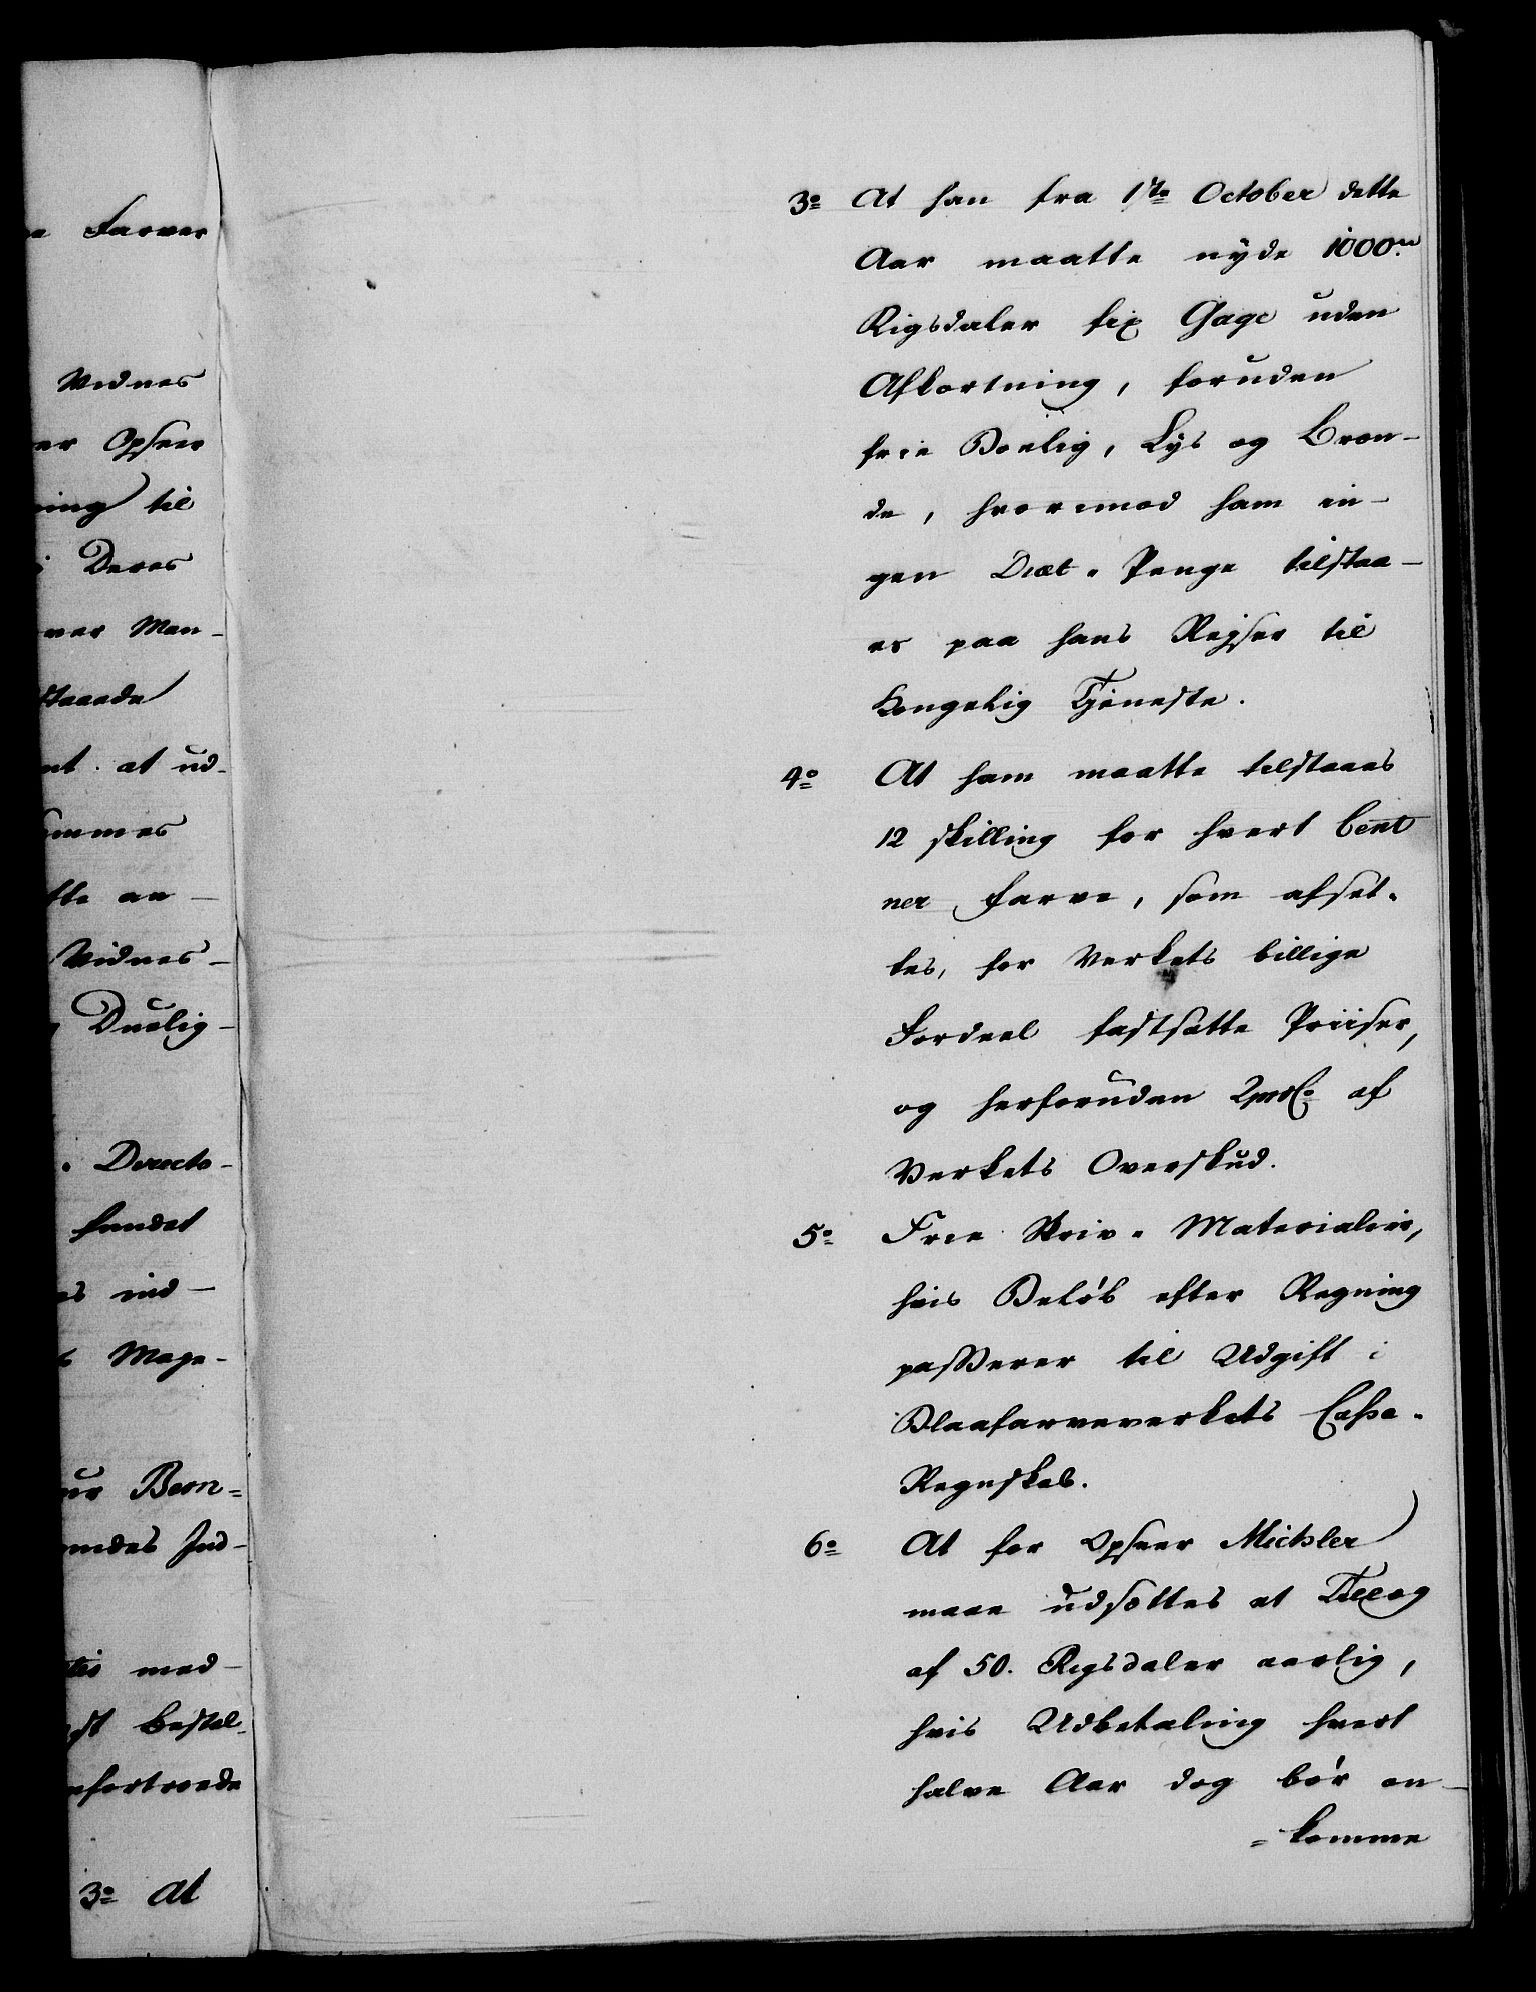 Farver
Vidnes
er Opseer
ning til
i Deres
ver Man-
staaede
nt. at ud-
ommes
tte an-
Vidnes-
Duelig-
Directo-
fundet
es ind-
Maye-
ur Bern=
omdes Ind-
med-
st bestal-
nfortroede
3o At
3o At han fra 1ste October dette
Aar maatte nyde 1000
Rigsdaler fix Gage uden
Afkortning, foruden
frie Boelig, Lys og Bræn-
de, hvorimod ham in-
gen Diæt-Penge tilstaa-
es paa hans Rejser til
kongelig Tjeneste.
4o At ham maatte tilstaaes
12 skilling for hvert Cent
ner Farve, som afsæt-
tes, for Verkets billige
Fordeel fastsatte Priiser,
og herforuden 2 proCo af
Verkets Overskud.
5o Frie Skriv-Materialier,
hvis Beløb efter Regning
passerer til Udgift i
Blaafarveverkets Casse-
Regnskab.
6o At for Opseer Michsler
maae udsættes et Tillæg
af 50. Rigsdaler aarlig,
hvis Udbetaling hvert
halve Aar dog bør an-
=komme